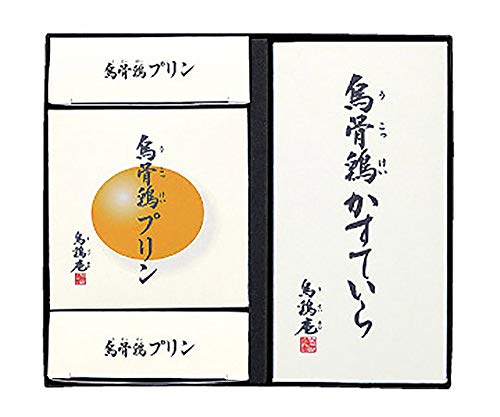 烏骨鶏プリン
烏骨鶏プリン
うこっけい
烏鶏庵
烏骨鶏プリン
烏骨鶏かすていら
うこっけい
烏鶏庵